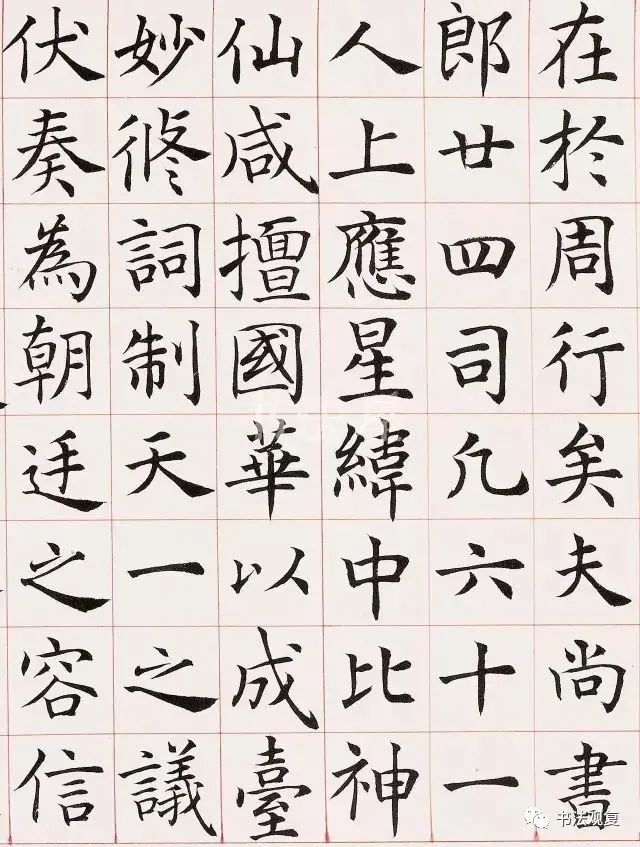 在於周行矣夫尚書
郎廿四司凡六十一
人上應星緯中比神
仙咸擅國華以成臺
妙修詞制天一之議
伏奏為朝廷之容信
书法观复